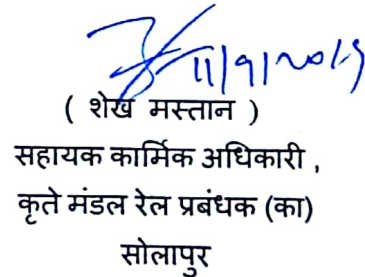 11/9/2019
( शेख मस्तान )
सहायक कार्मिक अधिकारी ,
कृते मंडल रेल प्रबंधक (का)
सोलापुर